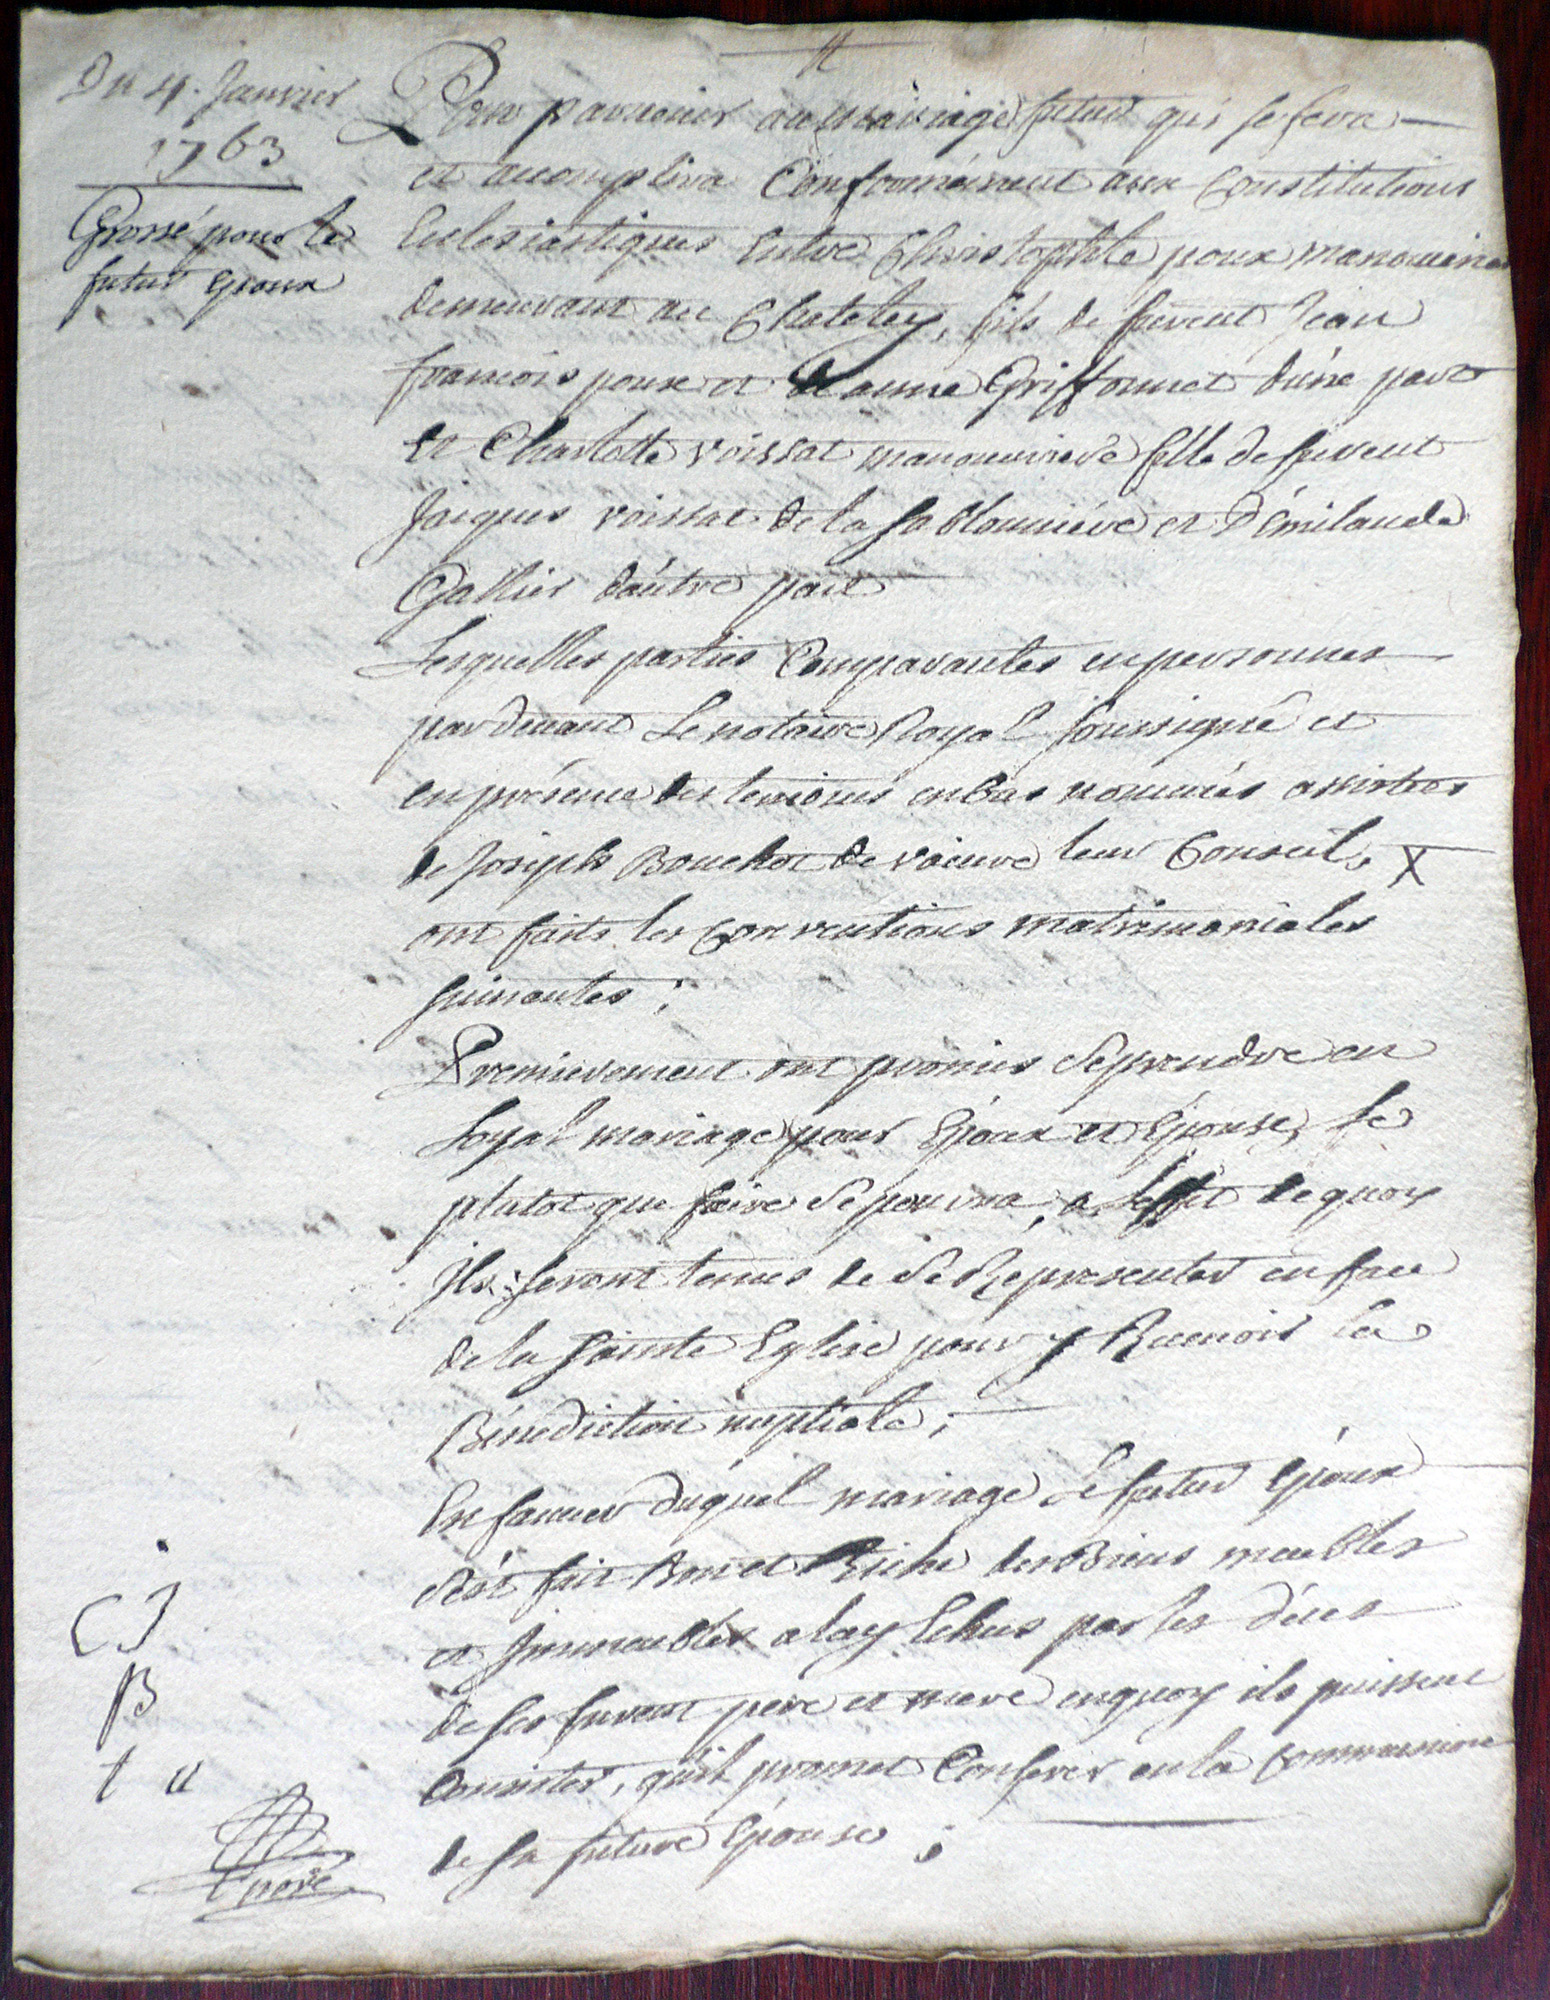 Du 4. Janvier
1763
Grossé pour le
futur Epoux
Pour parvenir au mariage futur qui se fera
et accomplira Conformément aux Constitutions
Eclesiastiques Entre Christophle poux manouvrier
demeurant au Chateley, fils de furent Jean
francois poux et de anne Griffonnet d'une part
Et Charlotte voissat manouvriere fille de furent
Jacques voissat de la Sablonniére et D'Emilande
Gallier d'autre part
Lesquelles parties Comparantes en personnes
par devant Le notaire Royal soussigné et
en présence des temoins en bas nommés assistées
de Joseph Bouchot de vaivre leur Conseil, X
ont faits les Conventions matrimoniales
suivantes ;
Premierement ont promis Se prendre en
Loyal mariage pour Epoux et Epouse, le
plutot que faire Se pourra, a Leffet de quoy
Ils seront tenus de Se Représenter en face
de la Sainte Eglise pour y Recevoir la
Bénédiction nuptiale ;
En faveur duquel mariage Le futur Epoux
s'est fait Bon et Riche des Biens meubles
et Immeubles a luy Echus par les décès
de ses furent pere et mere en quoy ils puissent
Consister, qu'il promet Conferer en la Communion
de sa future Epouse ;
C J
B
t a